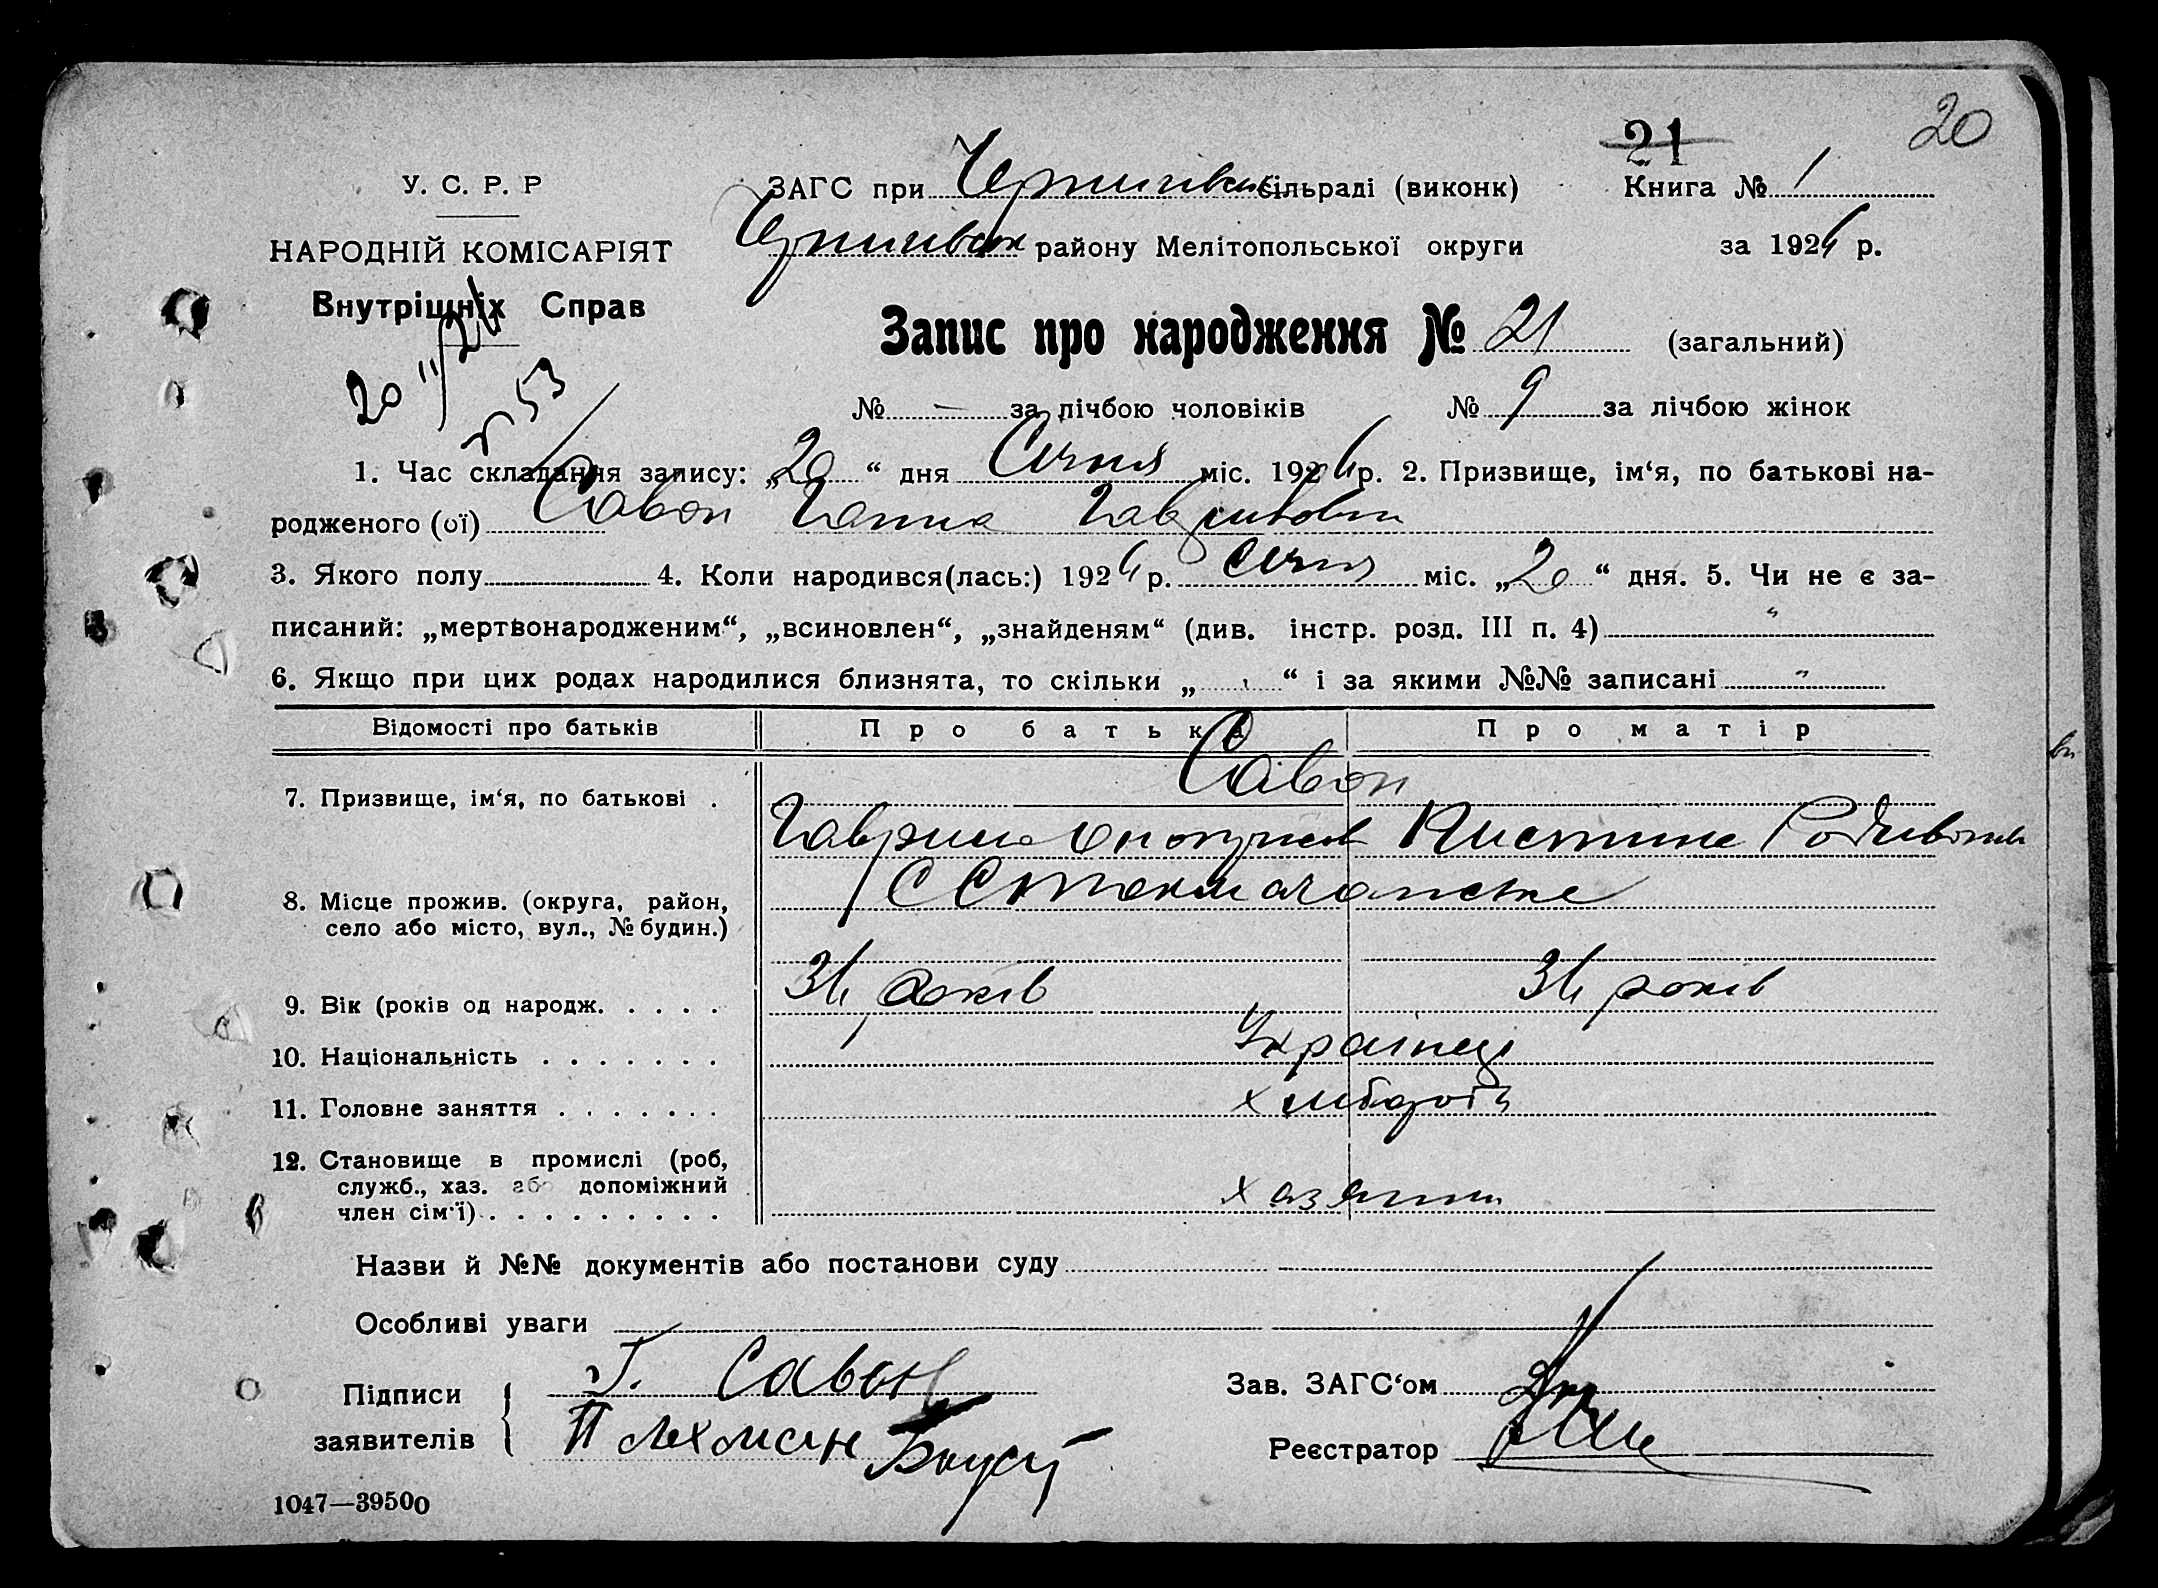 21 20
У. С. Р. Р
ЗАГС при Чернигівськ сільраді (виконк) Книга № 1
НАРОДНІЙ КОМІСАРІЯТ
Чернигівськ району Мелітопольської округи за 1924 р.
Внутрішніх Справ
Запис про народження № 21 (загальний)
№ — за лічбою чоловіків № 9 за лічбою жінок
1. Час складання запису: „20“ дня Січня міс. 1924 р. 2. Призвище, ім‘я, по батькові на-
родженого (ої) Савон Ганна Гавриловна
3. Якого полу 4. Коли народився(лась:) 1924 р. січня міс. „20“ дня. 5. Чи не є за-
писаний: „мертвонародженим“, „всиновлен“, „знайденям“ (див. інстр. розд. III п. 4) "
6. Якщо при цих родах народилися близнята, то скільки „ “ і за якими №№ записані "
Відомості про батьків Про батька Про матір
7. Призвище, ім‘я, по батькові . Савон
Гаврило
8. Місце прожив. (округа, район,
село або місто, вул., № будин.)
9. Вік (років од народж. . . . . 34 років 34 років
10. Національність . . . . . . . Українці
11. Головне заняття . . . . . . . хлібороби
12. Становище в промислі (роб,
служб., хаз. або допоміжний
член сім‘ї) . . . . . . . . . хазяини
Назви й №№ документів або постанови суду
Особливі уваги
Підписи
заявителів
Г. Савон
П Лехман
Зав. ЗАГС‘ом
Реєстратор
1047—39500